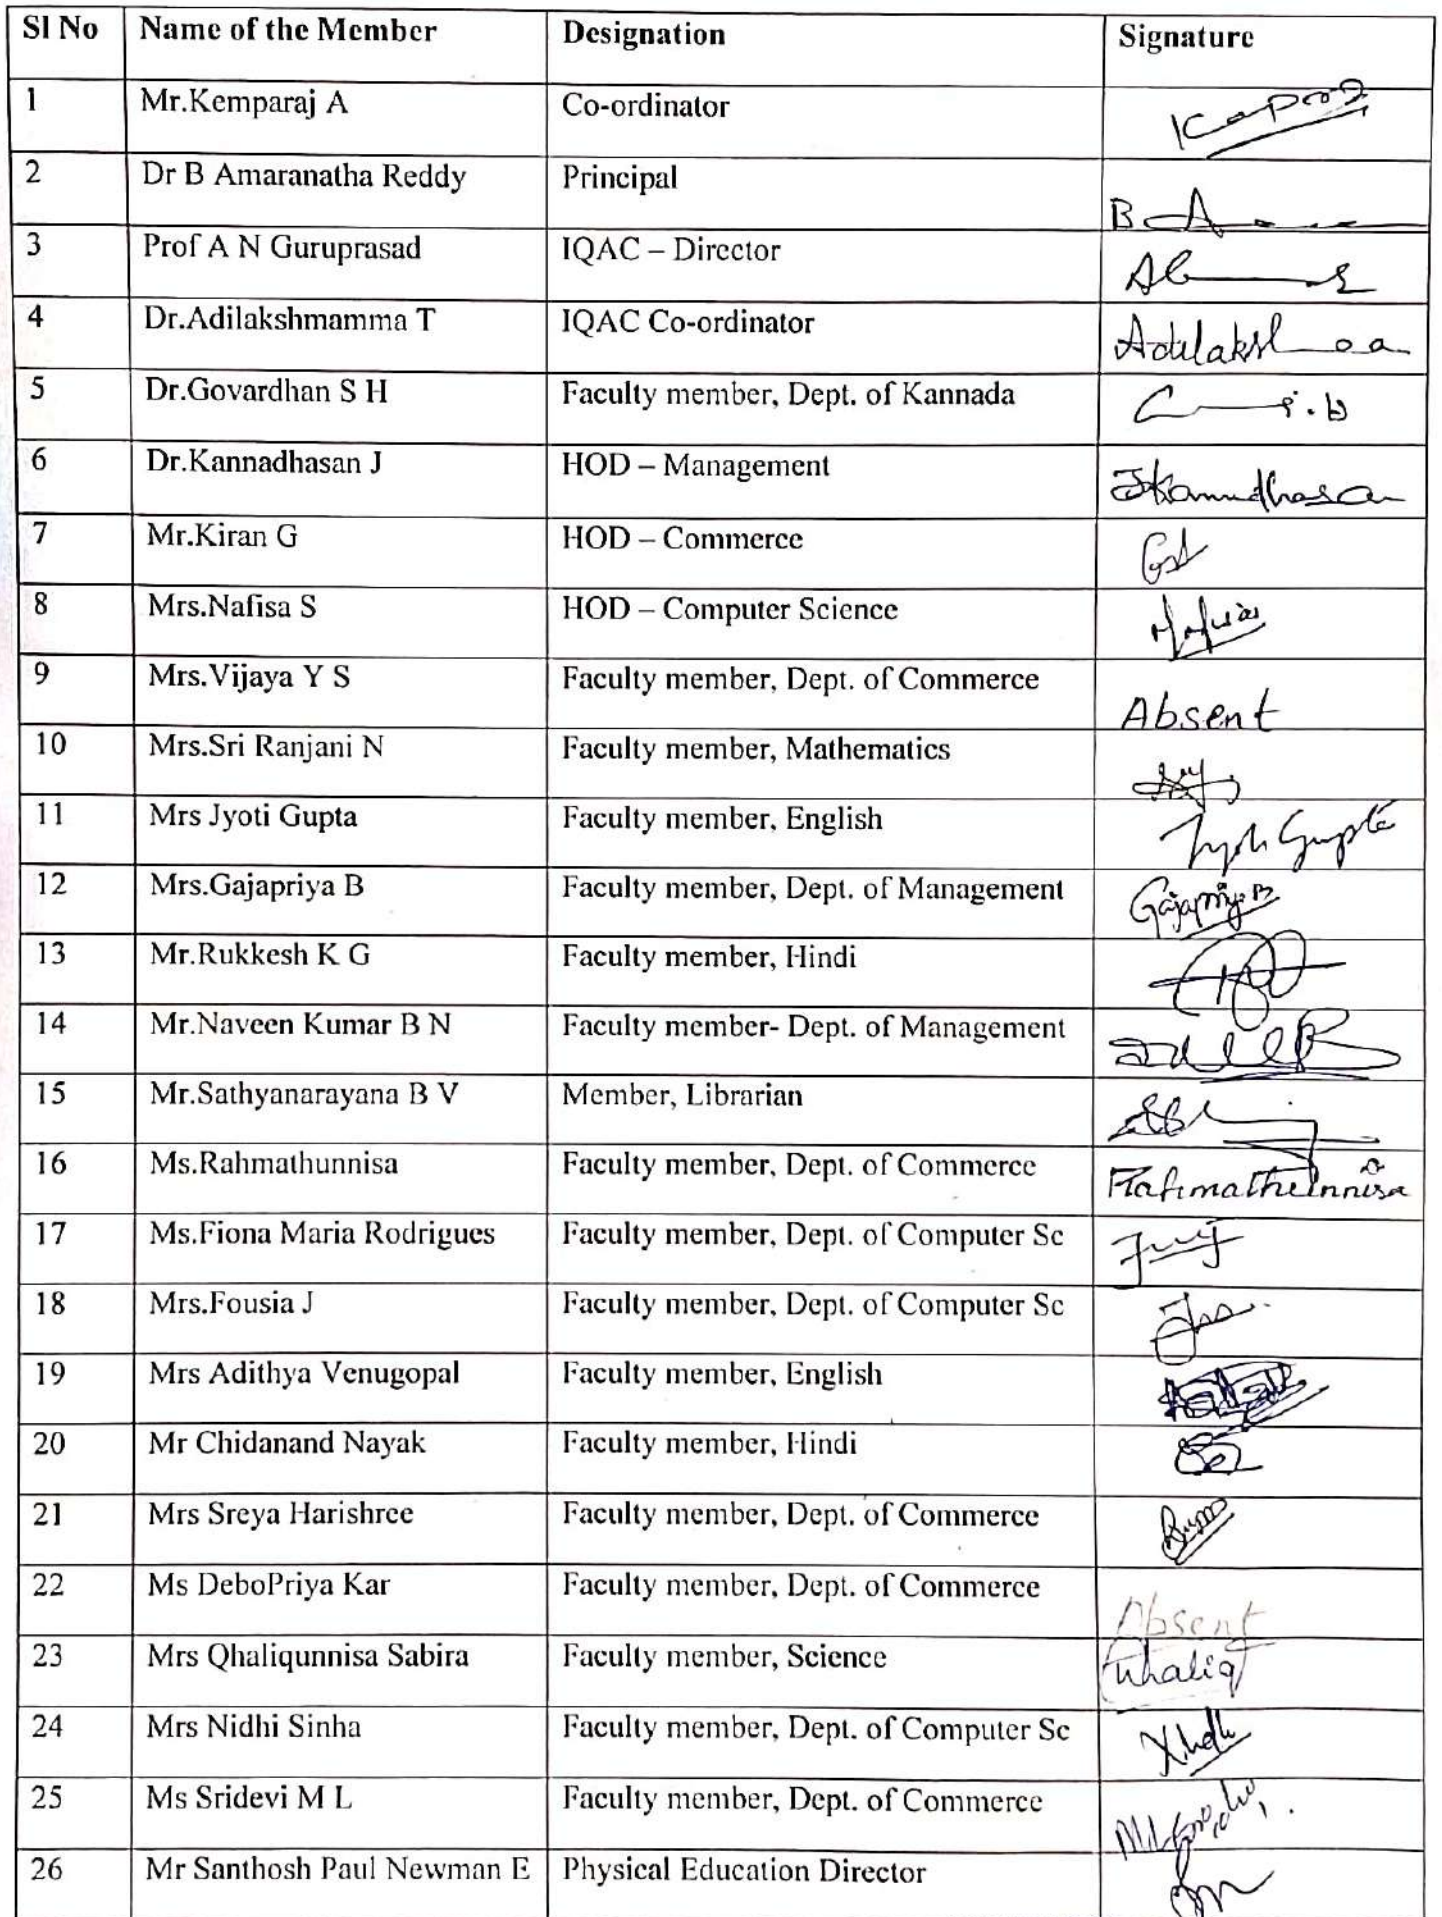 Sl No Name of the Member Designation Signature
1 Mr.Kemparaj A Co-ordinator
2 Dr B Amaranatha Reddy Principal B A
3 Prof A N Guruprasad IQAC – Director
4 Dr.Adilakshmamma T IQAC Co-ordinator
5 Dr.Govardhan S H Faculty member, Dept. of Kannada
6 Dr.Kannadhasan J HOD – Management
7 Mr.Kiran G HOD – Commerce
8 Mrs.Nafisa S HOD – Computer Science
9 Mrs.Vijaya Y S Faculty member, Dept. of Commerce Absent
10 Mrs.Sri Ranjani N Faculty member, Mathematics
11 Mrs Jyoti Gupta Faculty member, English Jyoti Gupta
12 Mrs.Gajapriya B Faculty member, Dept. of Management Gajapriya B
13 Mr.Rukkesh K G Faculty member, Hindi
14 Mr.Naveen Kumar B N Faculty member- Dept. of Management
15 Mr.Sathyanarayana B V Member, Librarian
16 Ms.Rahmathunnisa Faculty member, Dept. of Commerce Rahmathunnisa
17 Ms.Fiona Maria Rodrigues Faculty member, Dept. of Computer Sc
18 Mrs.Fousia J Faculty member, Dept. of Computer Sc
19 Mrs Adithya Venugopal Faculty member, English
20 Mr Chidanand Nayak Faculty member, Hindi
21 Mrs Sreya Harishree Faculty member, Dept. of Commerce
22 Ms DeboPriya Kar Faculty member, Dept. of Commerce Absent
23 Mrs Qhaliqunnisa Sabira Faculty member, Science
24 Mrs Nidhi Sinha Faculty member, Dept. of Computer Sc
25 Ms Sridevi M L Faculty member, Dept. of Commerce
26 Mr Santhosh Paul Newman E Physical Education Director